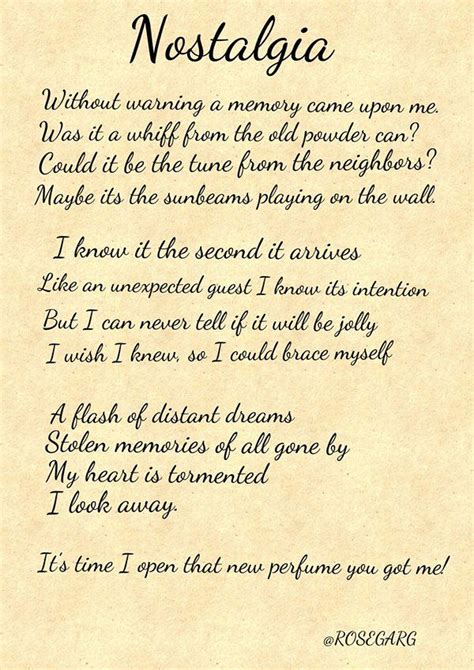 Nostalgia
Without warning a memory came upon me.
Was it a whiff from the old powder can?
Could it be the tune from the neighbors?
Maybe its the sunbeams playing on the wall.
I know it the second it arrives
Like an unexpected guest I know its intention
But I can never tell if it will be jolly
I wish I knew, so I could brace myself
A flash of distant dreams
Stolen memories of all gone by
My heart is tormented
I look away.
It's time I open that new perfume you got me!
@ROSEGARG